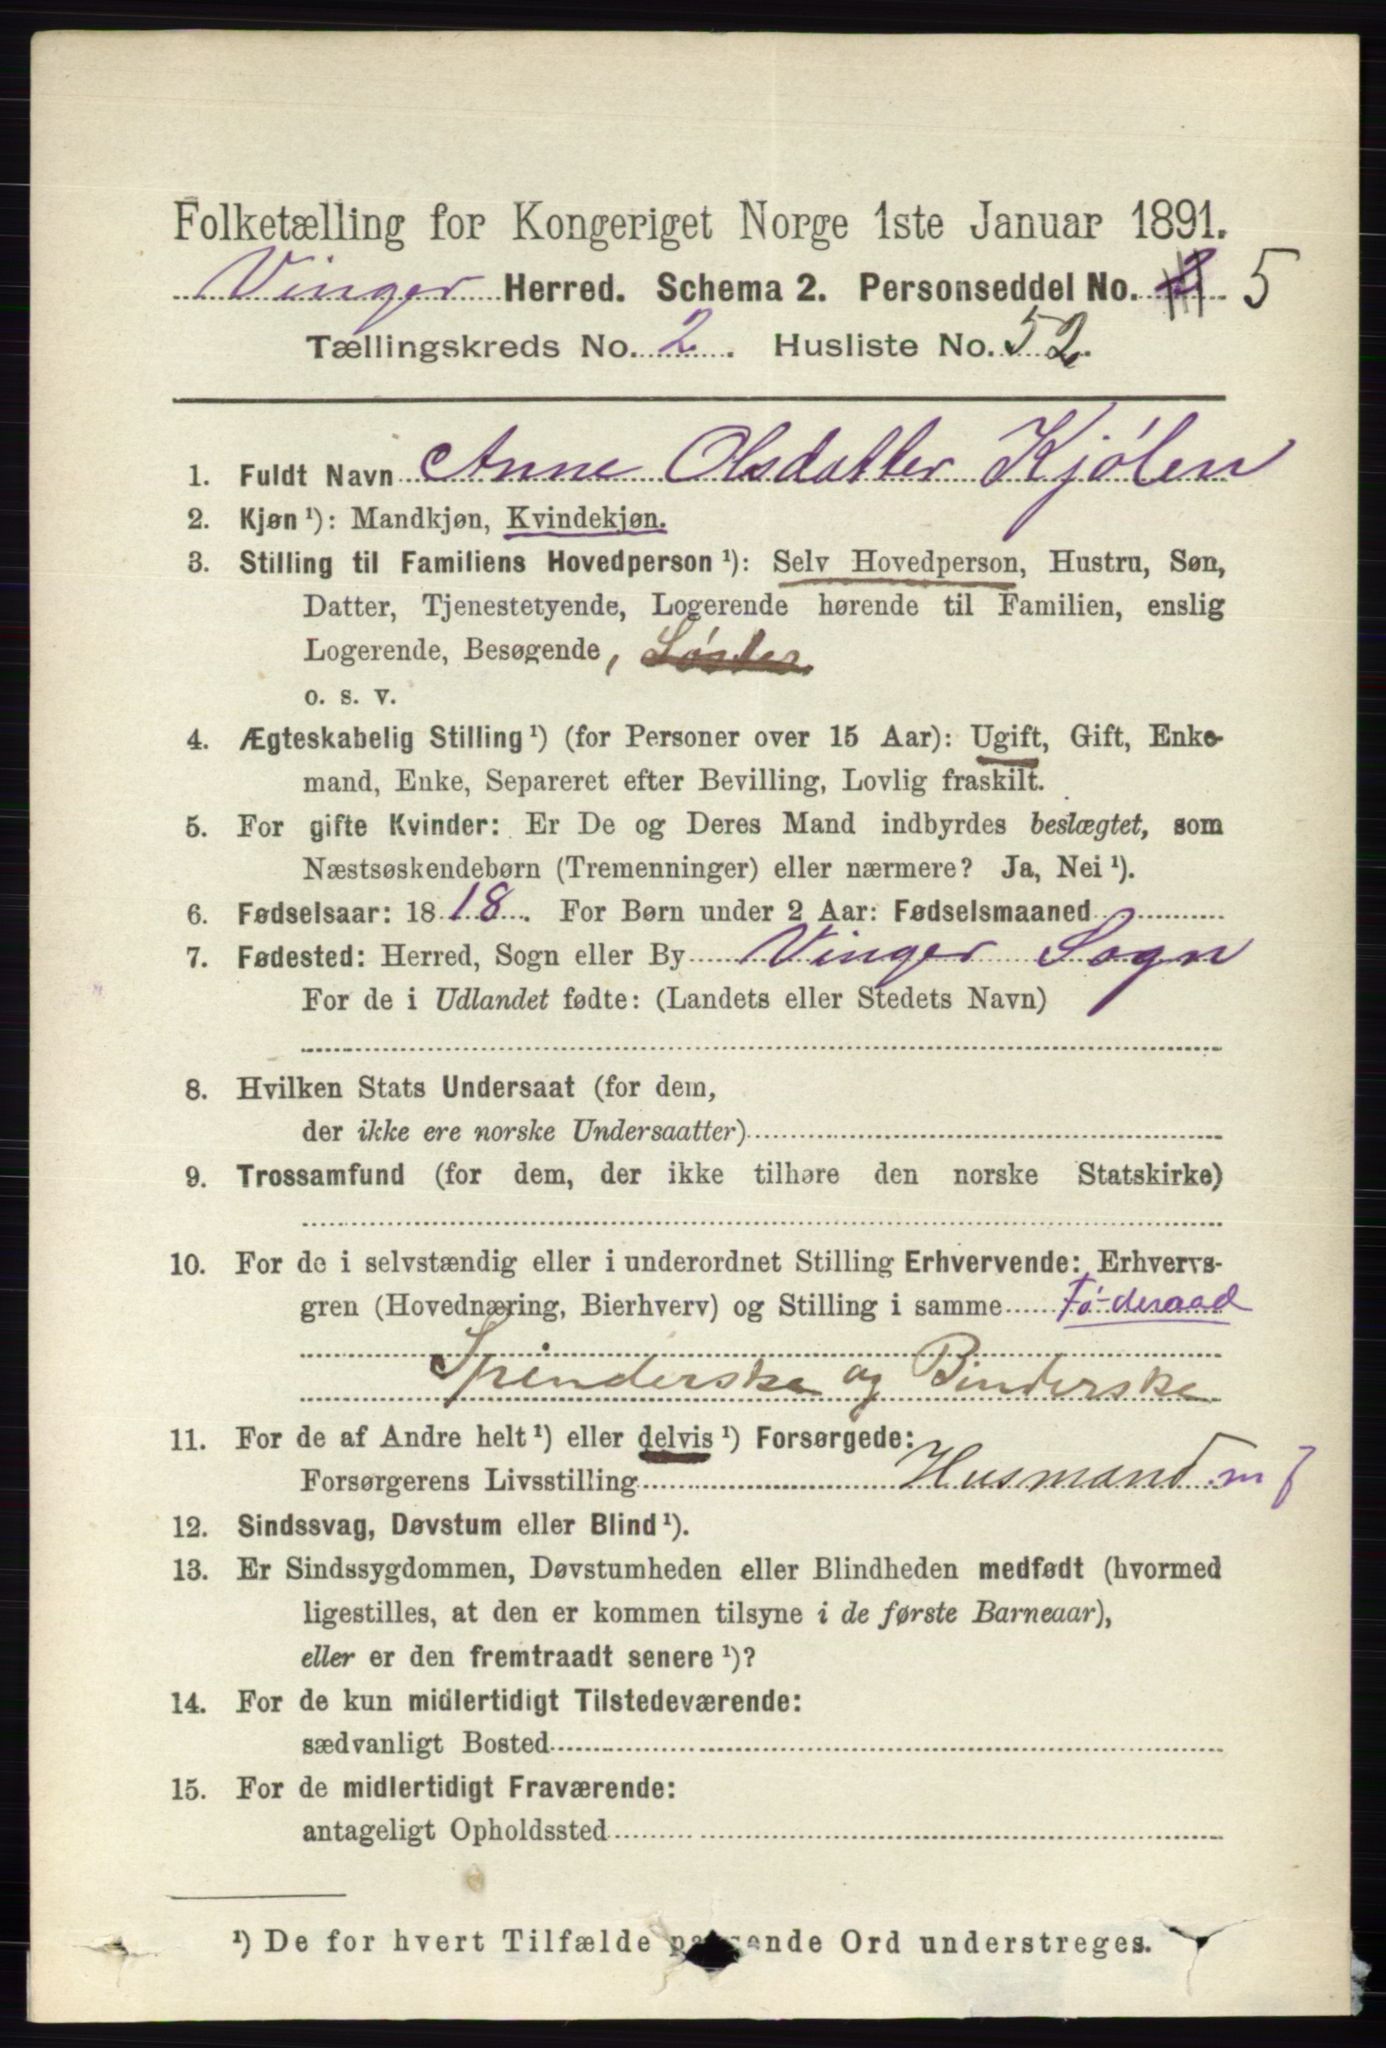 Folketælling for Kongeriget Norge 1ste Januar 1891.
Vinger Herred. Schema 2. Personseddel No. 2 5
Tællingskreds No. 2. Husliste No. 52.
1. Fuldt Navn Anne Olsdatter Kjølen
2. Kjøn ¹): Mandkjøn, Kvindekjøn.
3. Stilling til Familiens Hovedperson ¹): Selv Hovedperson, Hustru, Søn,
Datter, Tjenestetyende, Logerende hørende til Familien, enslig
Logerende, Besøgende, Søster
o. s. v.
4. Ægteskabelig Stilling ¹) (for Personer over 15 Aar): Ugift, Gift, Enke-
mand, Enke, Separeret efter Bevilling, Lovlig fraskilt.
5. For gifte Kvinder: Er De og Deres Mand indbyrdes beslægtet, som
Næstsøskendebørn (Tremenninger) eller nærmere? Ja, Nei ¹).
6. Fødselsaar: 1818. For Børn under 2 Aar: Fødselsmaaned
7. Fødested: Herred, Sogn eller By Vinger Sogn
For de i Udlandet fødte: (Landets eller Stedets Navn)
8. Hvilken Stats Undersaat (for dem,
der ikke ere norske Undersaatter)
9. Trossamfund (for dem, der ikke tilhøre den norske Statskirke)
10. For de i selvstændig eller i underordnet Stilling Erhvervende: Erhvervs-
gren (Hovednæring, Bierhverv) og Stilling i samme Føderaad
Spinderske og Binderske
11. For de af Andre helt ¹) eller delvis ¹) Forsørgede:
Forsørgerens Livsstilling Husmand m j
12. Sindssvag, Døvstum eller Blind ¹).
13. Er Sindssygdommen, Døvstumheden eller Blindheden medfødt (hvormed
ligestilles, at den er kommen tilsyne i de første Barneaar),
eller er den fremtraadt senere ¹)?
14. For de kun midlertidigt Tilstedeværende:
sædvanligt Bosted
15. For de midlertidigt Fraværende:
antageligt Opholdssted
¹) De for hvert Tilfælde passende Ord understreges.